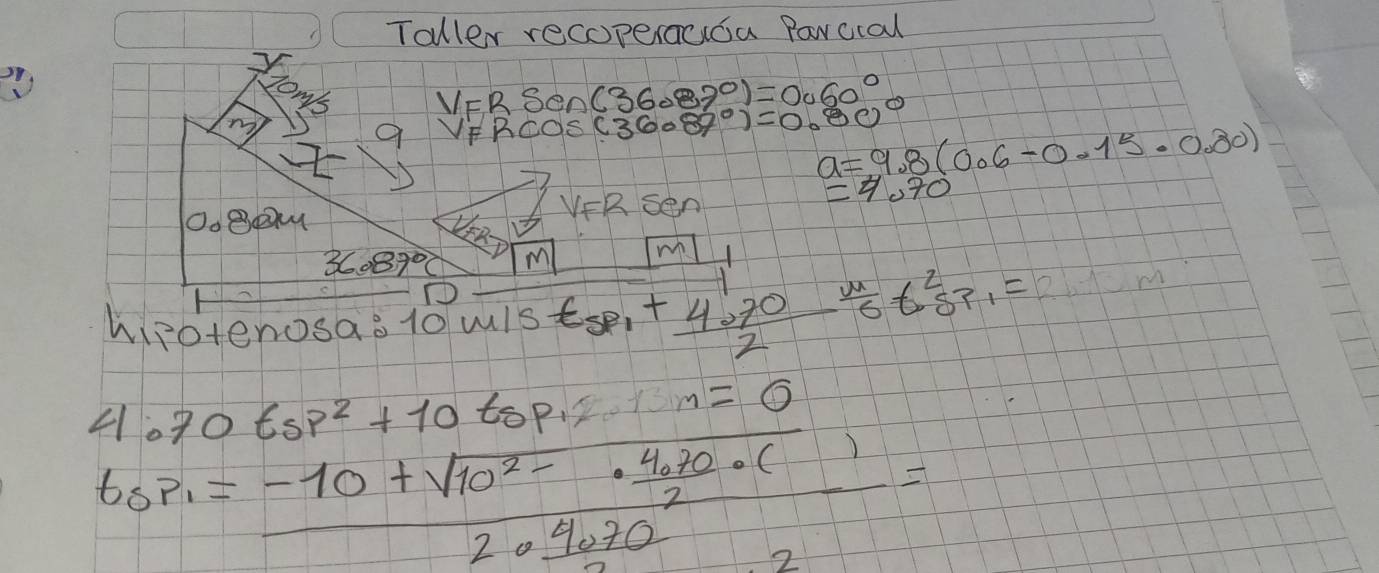 Taller recoperación Parcial
y 70m/s
VFR Sen(36.87°)=0.60°
VFR Cos(36.87°)=0.80°
m
x
a
a=9.8(0.6-0.15.0.80)
=4.70
0.80m
VFR Sen
VFR
36.87°
m
m
D
hipotenosa: 10 m/s tsp1 + 4.70/2 m/s t²sp1 =
4.70 tsp² + 10 tsp1 m = 0
tsp1 = -10 + √10² - . 4.70/2 . ( ) =
2 . 4.70
2